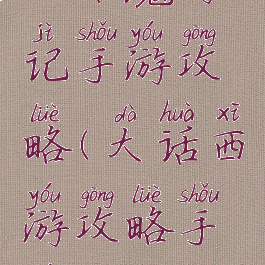 jì shǒu yóu gōng
记手游攻
lüè dà huà xī
略(大话西
yóu gōng lüè shǒu
游攻略手